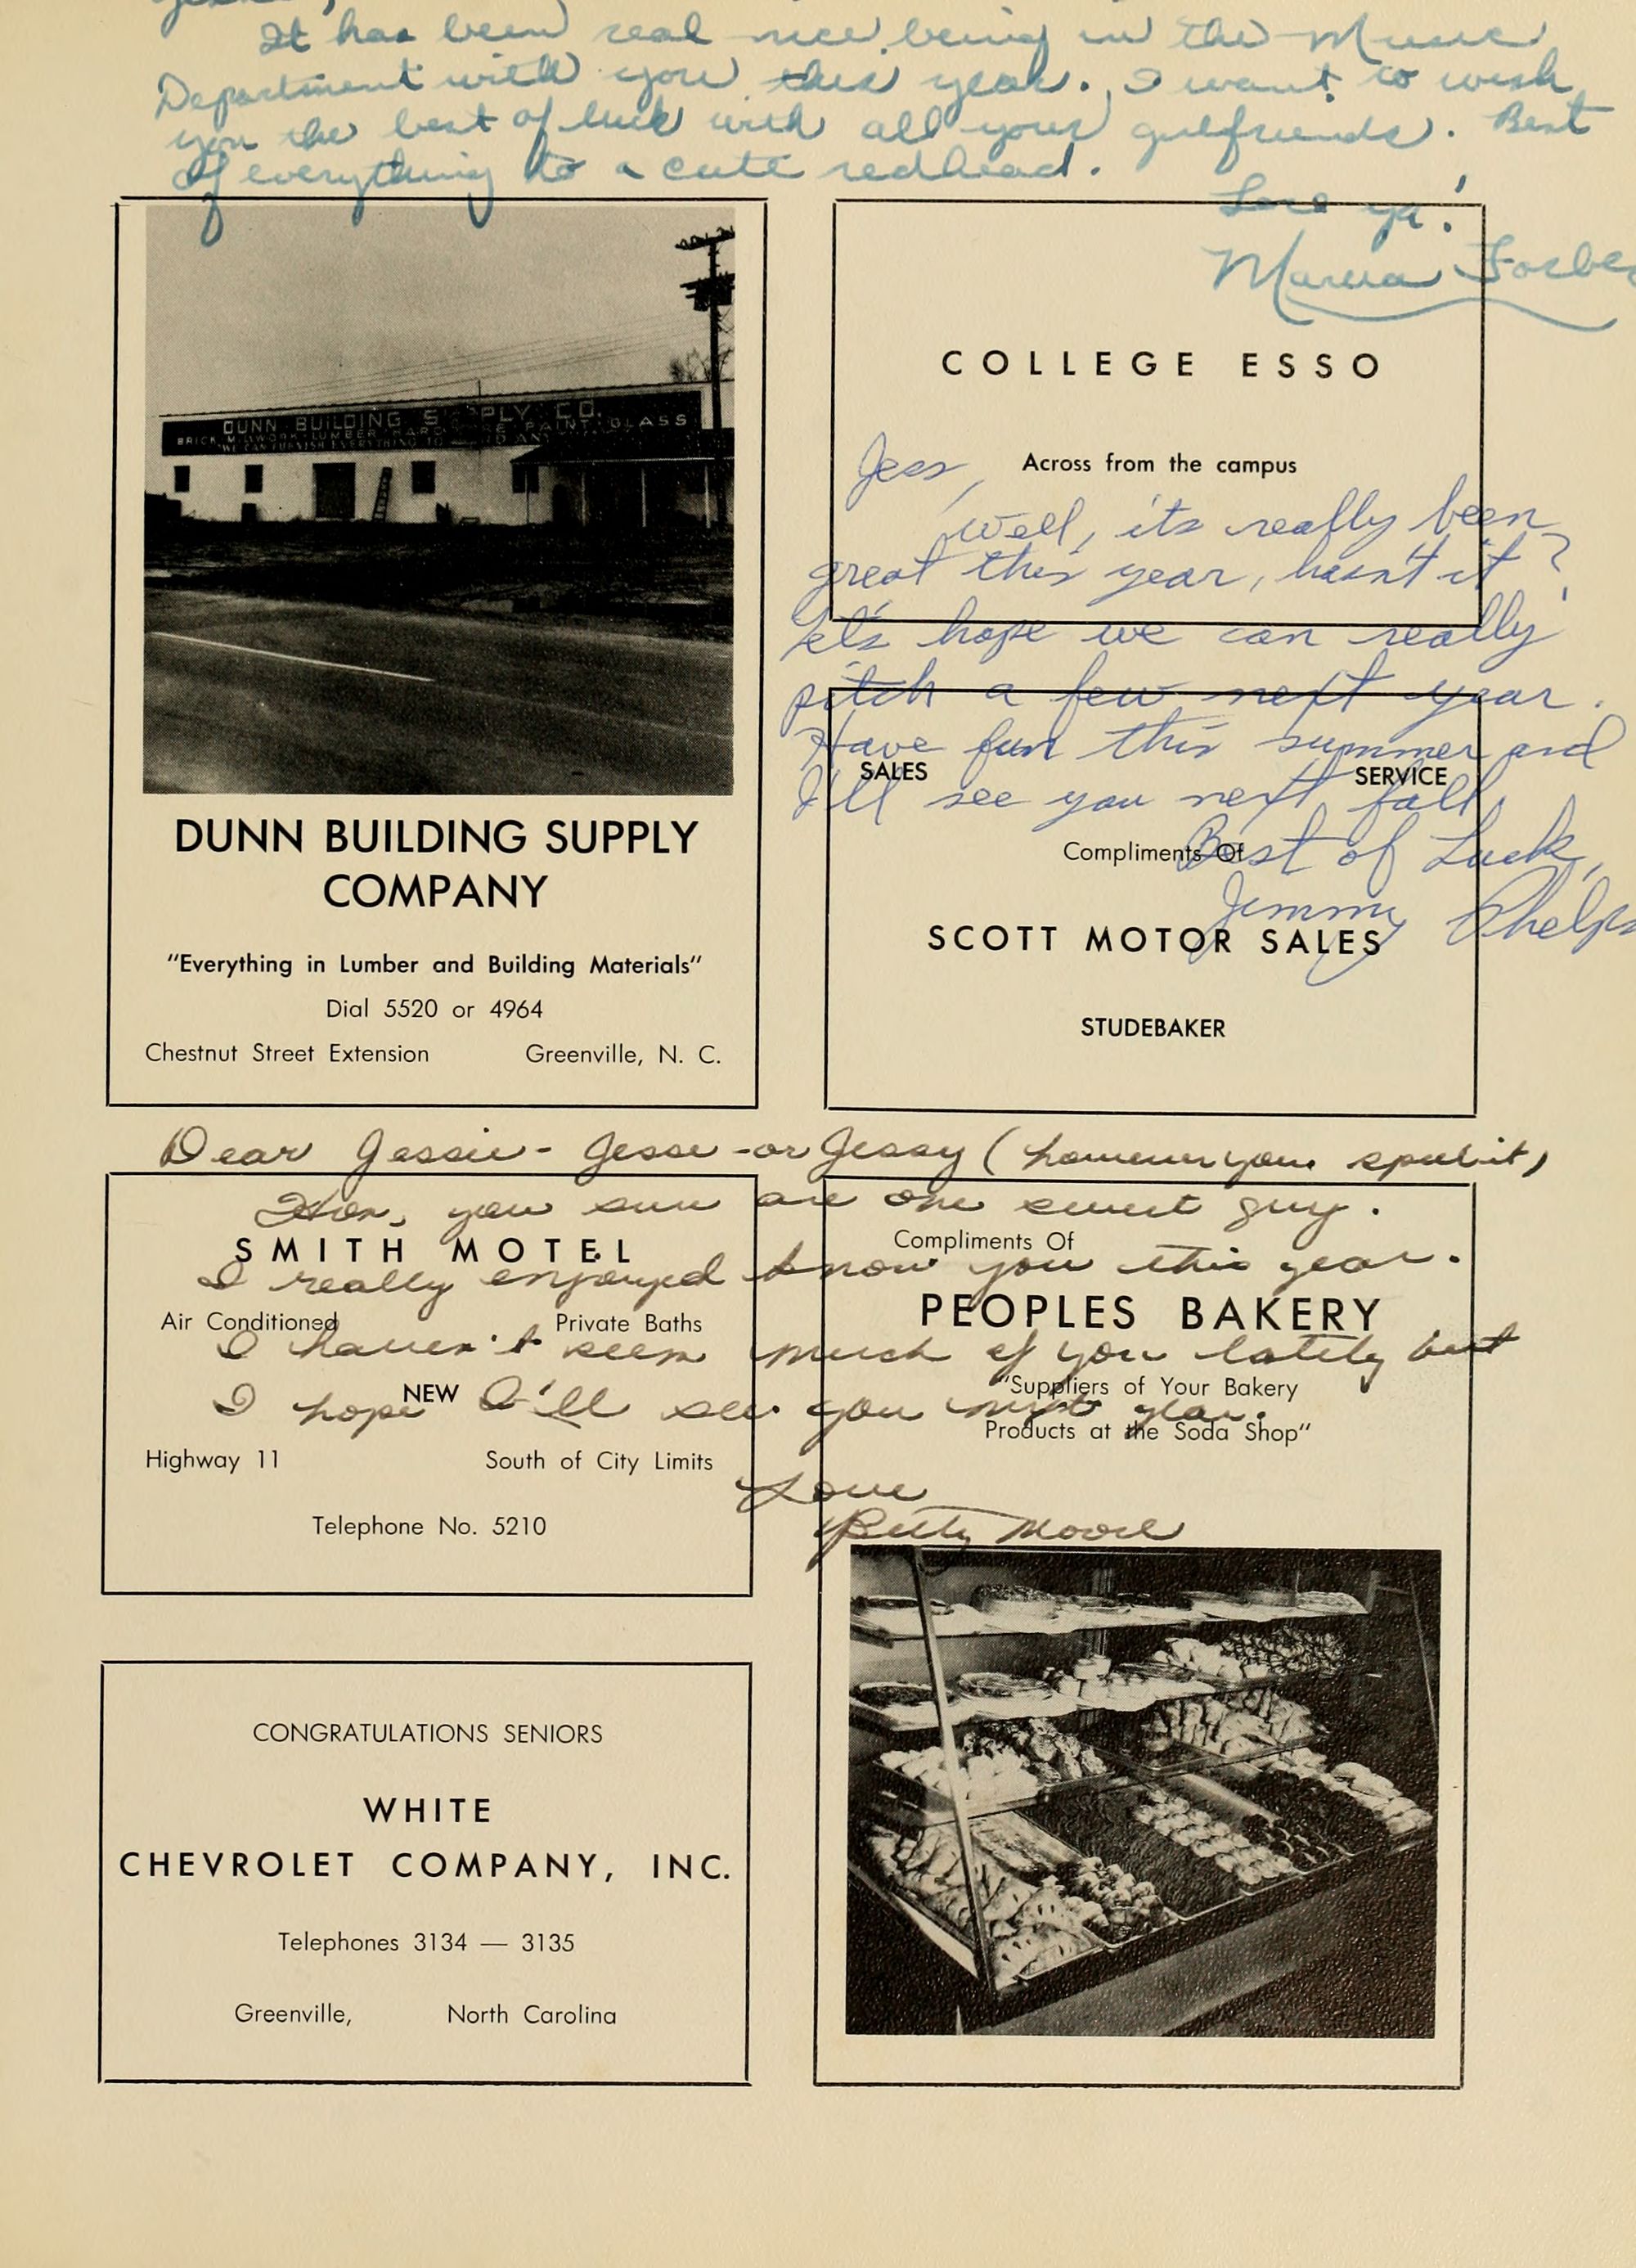 It has been real nice being in the Music
Department with you this year. I want to wish
you the best of luck with all your girlfriends. Best
of everything to a cute redhead.
Love ya!
Forbes
DUNN BUILDING SUPPLY CO.
BRICK MILLWORK LUMBER PAINT GLASS
DUNN BUILDING SUPPLY
COMPANY
"Everything in Lumber and Building Materials"
Dial 5520 or 4964
Chestnut Street Extension Greenville, N. C.
COLLEGE ESSO
Across from the campus
Jess,
Well, its really been
great this year, hasn't it?
Let's hope we can really
pitch a few next year.
Have fun this summer and
I'll see you next fall,
Best of Luck,
Jimmy Phelps
SALES SERVICE
Compliments Of
SCOTT MOTOR SALES
STUDEBAKER
Dear Jessie - Jesse - or Jessy (however you spell it)
Hon, you sure are one sweet guy.
I really enjoyed know you this year.
I haven't seen much of you lately but
I hope I'll see you next year.
Love
Betty Moore
SMITH MOTEL
Air Conditioned Private Baths
NEW
Highway 11 South of City Limits
Telephone No. 5210
Compliments Of
PEOPLES BAKERY
"Suppliers of Your Bakery
Products at the Soda Shop"
CONGRATULATIONS SENIORS
WHITE
CHEVROLET COMPANY, INC.
Telephones 3134 — 3135
Greenville, North Carolina